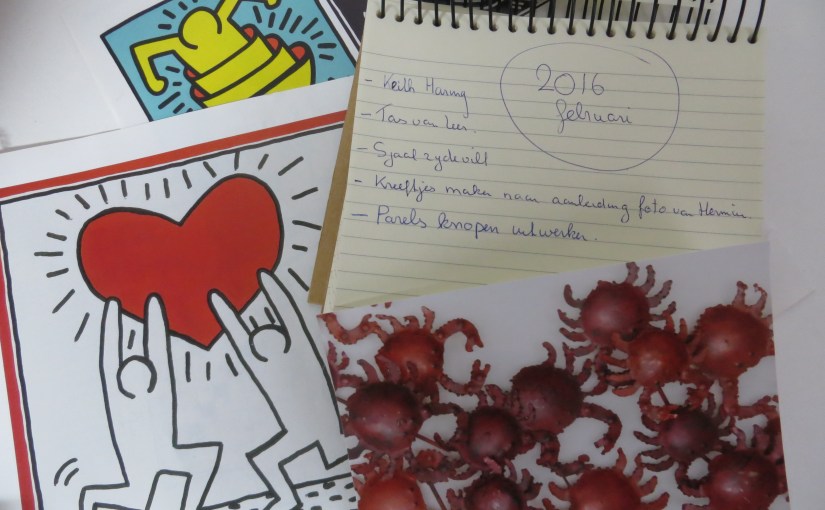 2016
februari
- Keith Haring
- Tas van leer.
- Sjaal zijdevilt
- Kreeftjes maken naar aanleiding foto van Hermin
- Parels knopen uitwerken.